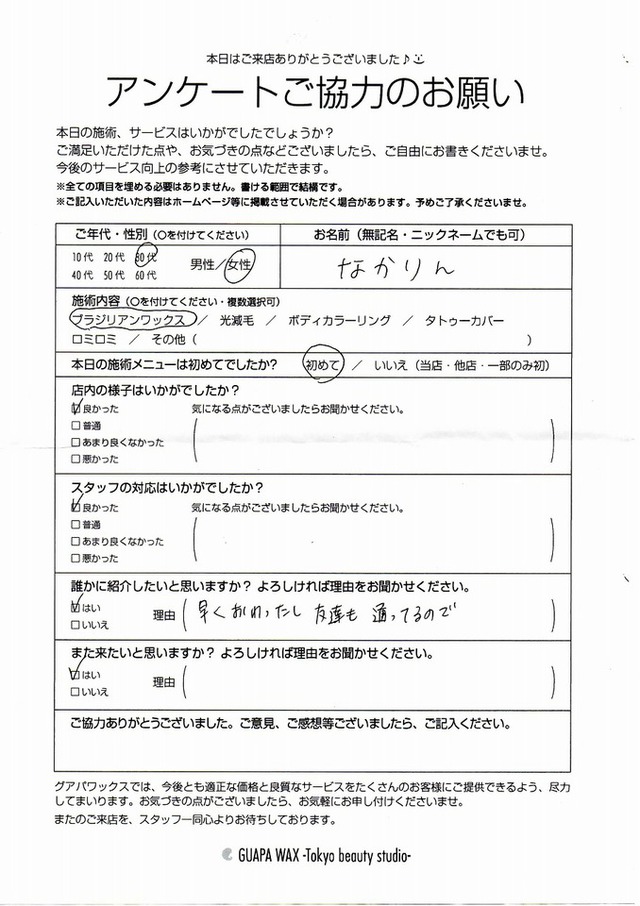 本日はご来店ありがとうございました♪
アンケートご協力のお願い
本日の施術、サービスはいかがでしたでしょうか？
ご満足いただけた点や、お気づきの点などございましたら、ご自由にお書きくださいませ。
今後のサービス向上の参考にさせていただきます。
※全ての項目を埋める必要はありません。書ける範囲で結構です。
※ご記入いただいた内容はホームページ等に掲載させていただく場合があります。予めご了承くださいませ。
ご年代・性別（○を付けてください） お名前（無記名・ニックネームでも可）
10代 20代 30代
40代 50代 60代
男性／女性
なかりん
施術内容（○を付けてください・複数選択可）
ブラジリアンワックス ／ 光減毛 ／ ボディカラーリング ／ タトゥーカバー
□ミロミ ／ その他（ ）
本日の施術メニューは初めてでしたか？ 初めて ／ いいえ（当店・他店・一部のみ初）
店内の様子はいかがでしたか？
☑良かった 気になる点がございましたらお聞かせください。
□普通
□あまり良くなかった
□悪かった
スタッフの対応はいかがでしたか？
☑良かった 気になる点がございましたらお聞かせください。
□普通
□あまり良くなかった
□悪かった
誰かに紹介したいと思いますか？ よろしければ理由をお聞かせください。
☑はい
□いいえ
理由（早くおわったし 友達も 通ってるので）
また来たいと思いますか？ よろしければ理由をお聞かせください。
☑はい
□いいえ
理由（ ）
ご協力ありがとうございました。ご意見、ご感想等ございましたら、ご記入ください。
グアパワックスでは、今後とも適正な価格と良質なサービスをたくさんのお客様にご提供できるよう、尽力
してまいります。お気づきの点がございましたら、お気軽にお申し付けくださいませ。
またのご来店を、スタッフ一同心よりお待ちしております。
GUAPA WAX -Tokyo beauty studio-